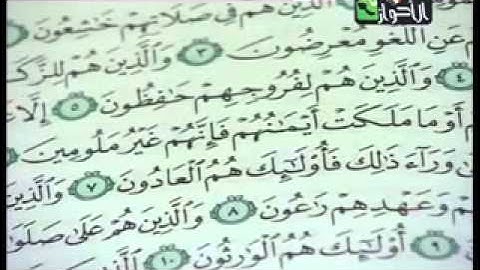 ٱلَّذِينَ هُمْ فِي صَلَاتِهِمْ خَٰشِعُونَ
عَنِ ٱللَّغْوِ مُعْرِضُونَ ٣ وَٱلَّذِينَ هُمْ لِلزَّكَ
٤ وَٱلَّذِينَ هُمْ لِفُرُوجِهِمْ حَٰفِظُونَ ٥ إِلَّا
أَوْ مَا مَلَكَتْ أَيْمَٰنُهُمْ فَإِنَّهُمْ غَيْرُ مَلُومِينَ
وَرَآءَ ذَٰلِكَ فَأُو۟لَٰٓئِكَ هُمُ ٱلْعَادُونَ ٧ وَٱلَّذِينَ
وَعَهْدِهِمْ رَٰعُونَ ٨ وَٱلَّذِينَ هُمْ عَلَىٰ صَلَوَ
٩ أُو۟لَٰٓئِكَ هُمُ ٱلْوَٰرِثُونَ ١٠